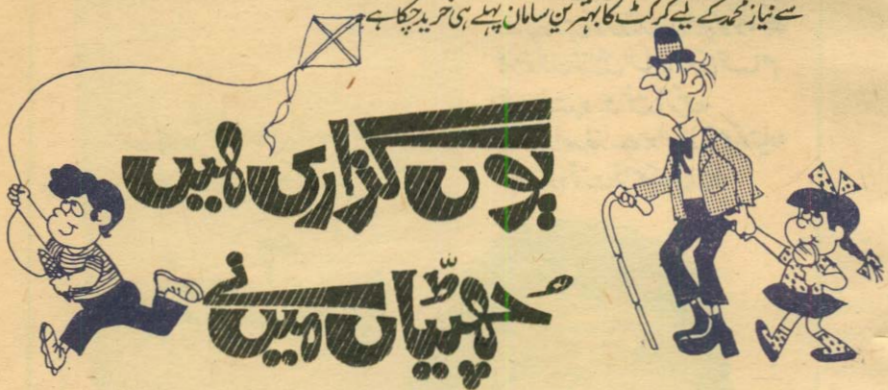 سے نیاز محمد کے لیے کرکٹ کا بہترین سامان پہلے ہی خرید چکا ہے
یوں گزاری ہیں
چھٹیاں میں نے